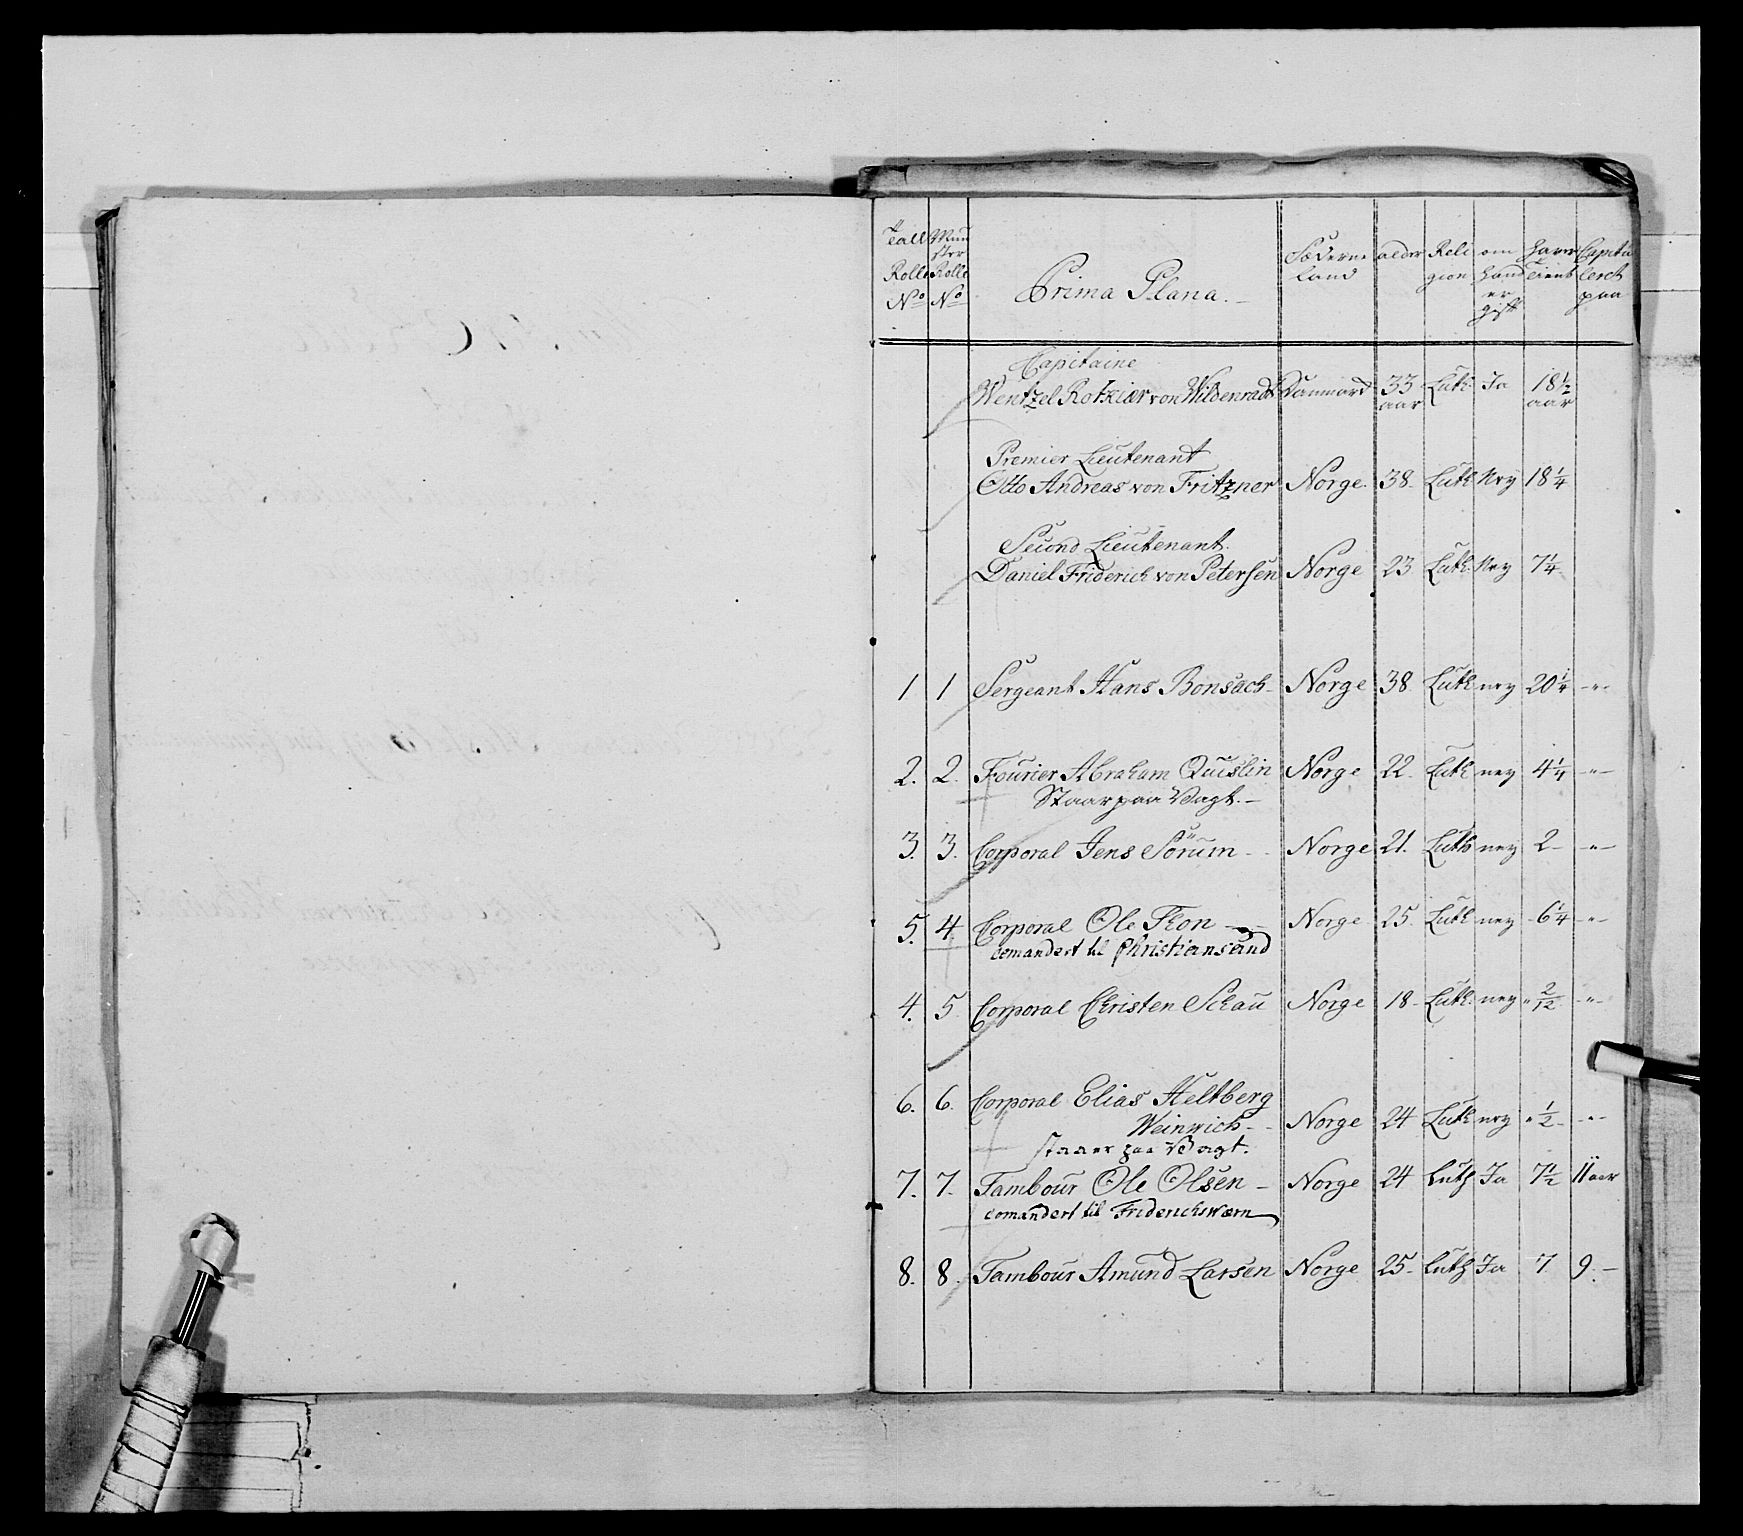 Tall Rolle No | Mun ster Rolle No | Prima Plana. | Føderne land | alder | Reli gion | om hand er gift | haver Tient | Capitu leret paa
Capitaine
Wentzel Rotkier von Wildenradt | Danmard | 33 aar | Luth | Ja | 18 1/2 aar
Premier Lieutenant
Otto Andreas von Fritzner | Norge. | 38. | Luth | Ney | 18 1/4
Second Lieutenant.
Daniel Friderich von Petersen | Norge | 23 | Luth. | Ney | 7 1/4
1 | 1 | Sergeant Hans Bonsach | Norge | 38. | Luth | ney | 20 1/4 | -"-
2. | 2. | Fourier Abraham Quislin | Norge | 22. | Luth | ney | 4 1/4 | -"-
Staar paa Vagt.
3. | 3. | Corporal Jens Sörum | Norge | 21. | Luth | ney | 2 | -"-
5. | 4. | Corporal Ole Fkon | Norge | 25. | Luth | ney | 6 1/4 | -"-
comandert til Christiansand
4. | 5. | Corporal Christen Schau | Norge | 18 | Luth. | ney | " 2/12 | -"-
6. | 6. | Corporal Elias Heltberg
Weinwich | Norge | 24 | Luth | ney | " 1/2 | -"-
staaer paa Vagt.
7. | 7. | Tambour Ole Olsen | Norge | 24 | Luth | Ja | 7 1/2 | 11 aar
comandert til Friderichswærn
8. | 8. | Tambour Amund Larsen | Norge | 25 | Luth | Ja | 7 | 9.